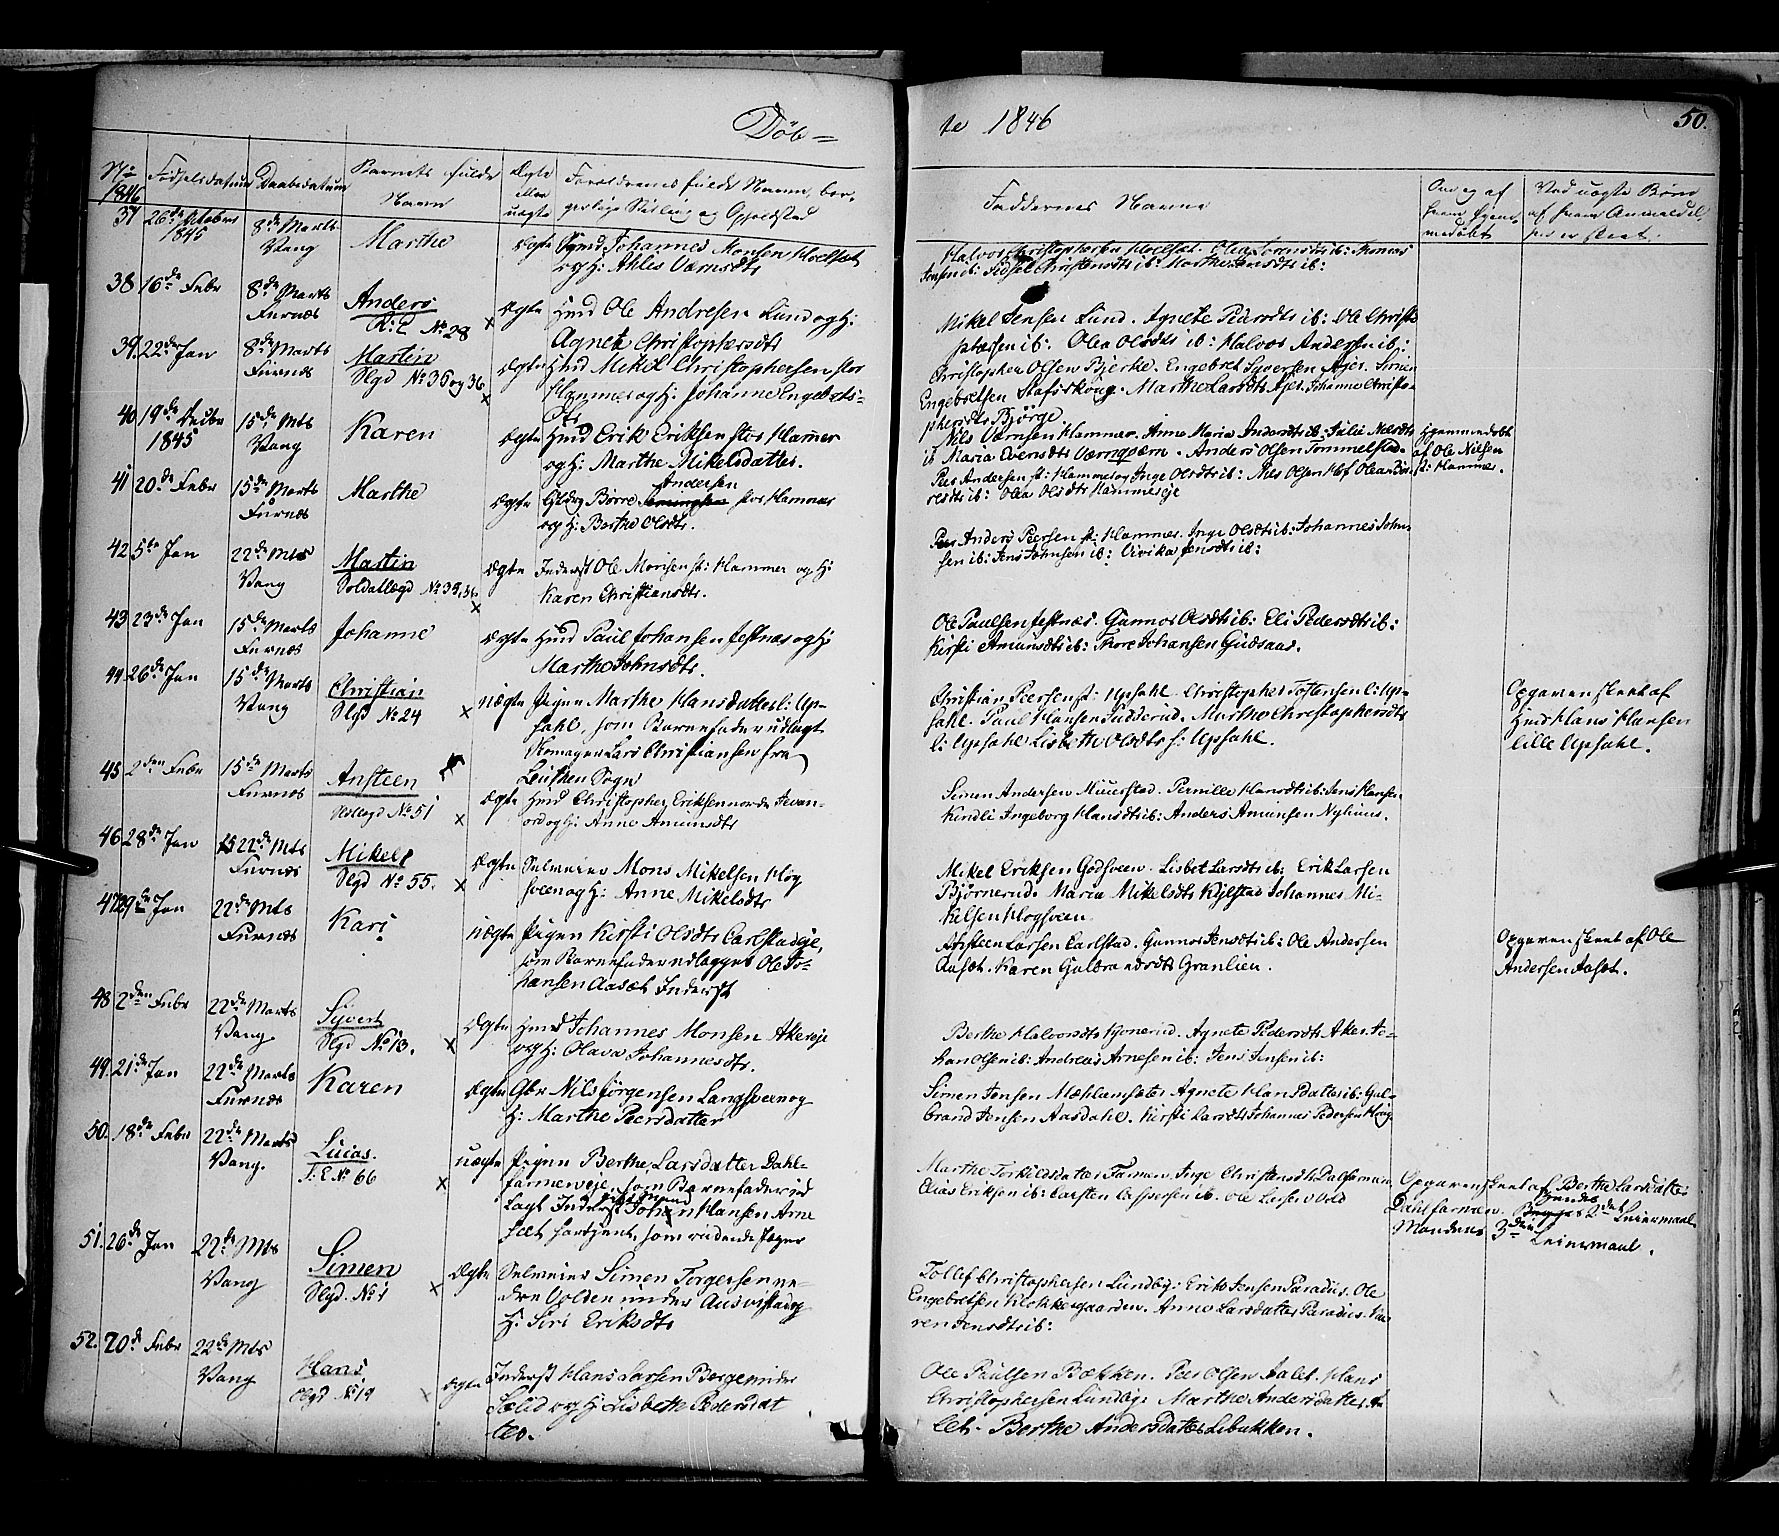 Døb=
te 1846
50.
No 1846
Fødselsdatum
Daabsdatum
Barnets fulde Navn
Ægte eller uægte
Forældrenes fulde Navne, borgerlige Stilling og Opholdsted
Faddernes Navne
Om og af hvem hjemmedøbt
Ved uægte Børn af hvem Anmeldelsen er skeet.
37 26de October 1845
8de Marts Vang
Marthe
ægte
Gmd Johannes Monsen Hoelset
og H:
Halvor Christophersen Hoelset. Olea ib: Thomas
Jensen ib: Sidsel Christensdtr ib: Marthe Jensdtr ib:
38 16de Febr
8de Marts Furnæs
Anders
No 28
ægte
Hmd Ole Andresen Lund og H:
Agnete Christophersdtr
Mikel Jensen Lund. Agnete Pedersdtr ib: Ole Christo
phersen ib: Olea Olsdtr ib: Halvor Andersen ib:
39. 22de Jan
8de Marts Furnæs
Martin
Slgd No 35 og 36
ægte
Hmd Mikel Christophersen stor
Hammer og H: Johanne Engebrets=
dtr
Christopher Olsen Bjerke. Engebret Syversen Ajer. Simen
Engebretsen Stafsskoug. Marthe Larsdtr Ajer. Johanne Christo-
phersdtr Bjørge
40 19de Decbr 1845
15de Mts Vang
Karen
ægte
Hmd Erik Eriksen stor Hamer
og H: Marthe Mikelsdatter.
Nils Hammer. Anne Maria Andersdtr ib: Julie Nilsdtr
ib Maria Evensdtr. Anders Olsen Tommelstad.
Hjemmedøbt
af Ole Nilsen
st: Hammer.
41 20de Febr
15de Marts Furnæs
Marthe
ægte
Børre Andersen stor Hammer
og H: Berthe Olsdtr.
Peer Andersen st: Hammer og Inge Olsdtr ib: Nils Olsen
ib: Olea Olsdtr Hammereje
42 5te Jan
22de Mts Vang
Martin
Soldatlægd No 35, 36
ægte
Inderst Ole Monsen st: Hammer og H:
Karen Christiansdtr.
Anders Peersen st: Hammer. Inge Olsdtr ib: Johannes John-
sen ib: Jens Johnsen ib: Jensdtr ib:
43 23de Jan
15de Marts Furnæs
Johanne
ægte
Hmd Paul Johansen Jessnæs og H:
Marthe Johnsdtr.
Ole Paulsen Jessnæs. Gunnor Olsdtr ib: Eli Pedersdtr ib:
Kirsti Amundsdtr ib: Thore Johansen
44 26de Jan
15de Marts Vang
Christian
Slgd No 24
uægte
Pigen Marthe Hansdatter l: Up-
sahl, som Barnefader udlagt
Skomager Lars Christiansen fra
Leuthen Sogn
Christian Peersen st: Upsahl. Christopher Tostensen l: Up=
sahl. Paul Hansen. Marthe Christophersdtr
l: Upsahl Lisbeth Olsdtr s: Upsahl.
Opgaven skeet af
Hmd Hans Hansen
lille Upsahl.
45 2den Febr
15de Marts Furnæs
Ansteen
No 51
ægte
Hmd Christopher Eriksen nordre
og H: Anne Amunsdtr
Simen Andersen Muurstad. Pernille Hansdtr ib: Jens Hansen
Kindli Ingeborg Hansdtr ib: Anders Amunsen Nyhuus.
46 28de Jan
22de Mts Furnæs
Mikel
Slgd No 55.
ægte
Selveier Mons Mikelsen Høg
sveen og H: Anne Mikelsdtr
Mikel Eriksen Godsveen. Lisbet Larsdtr ib: Erik Larsen
Bjørnerud. Maria Mikelsdtr Kjelstad Johannes Mi-
kelsen Høgsveen
47 29de Jan
22de Mts Furnæs
Kari
uægte
Pigen Kirsti Olsdtr Carlstadeje,
som Barnefader udlægges Ole Jo-
hansen Aaset Inderst
Arsteen Larsen Carlstad. Gunnor Jensdtr ib: Ole Andersen
Aaset. Karen Gulbrandsdtr Granlien.
Opgaven skeet af Ole
Andersen Aaset.
48 2den Febr
22de Marts Vang
Syvert
Slgd No 13.
ægte
Hmd Johannes Monsen Akereje
og H: Olava Johannesdtr.
Berthe Halvorsdtr. Agnete Pedersdtr Aker. Jo-
han Olsen ib: Andreas Arnesen ib: Jens Jensen ib:
49. 21de Jan
22de Marts Furnæs
Karen
ægte
Gbr Nils Jørgensen Langsveen og
H: Marthe Peersdatter
Simen Jensen Agnete Hansdatter ib: Gul-
brand Jensen Aasdahl. Kirsti Larsdtr Johannes Pedersen
50. 18de Febr
22de Marts Vang.
Lucas.
No 66
uægte
Pigen Berthe Larsdatter Dahl-
farmeneje, som Barnefader ud
lagt Inderst Johan Hansen Arne
Marthe Torkildsdatter Farmen. Inge Christensdtr Dalfarmen
Elias Eriksen ib: Carsten ib. Ole Larsen
Opgaven skeet af Berthe Larsdatter
Dahlfarmen. 2det Leiermaal
Mandens 3die Leiermaal.
51. 26de Jan
22de Mts Vang
Simen
Slgd. No 1
ægte
Selveier Simen Torgersen ne-
dre Volden under
H: Siri Eriksdtr
Tollef Christophersen Lundby. Erik Jensen Paradis. Ole
Engebretsen Klokkergaarden. Anne Larsdatter Paradis. Ka
ren Jensdtr ib:
52. 20de Febr
22de Mts Vang
Hans
Slgd No 19
ægte
Inderst Hans Larsen Berge under
og H: Lisbethe Pedersdat
ter.
Ole Paulsen Bækken. Peer Olsen Hans
Christophersen Marthe Andersdatter
Berthe Andersdatter